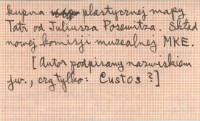 kupna plastycznej mapy
Tatr od Juliusza Posewitza. Skład
nowej komisji muzealnej MKE.
[Autor podpisany nazwiskiem
jw., czy tylko: Custos?]